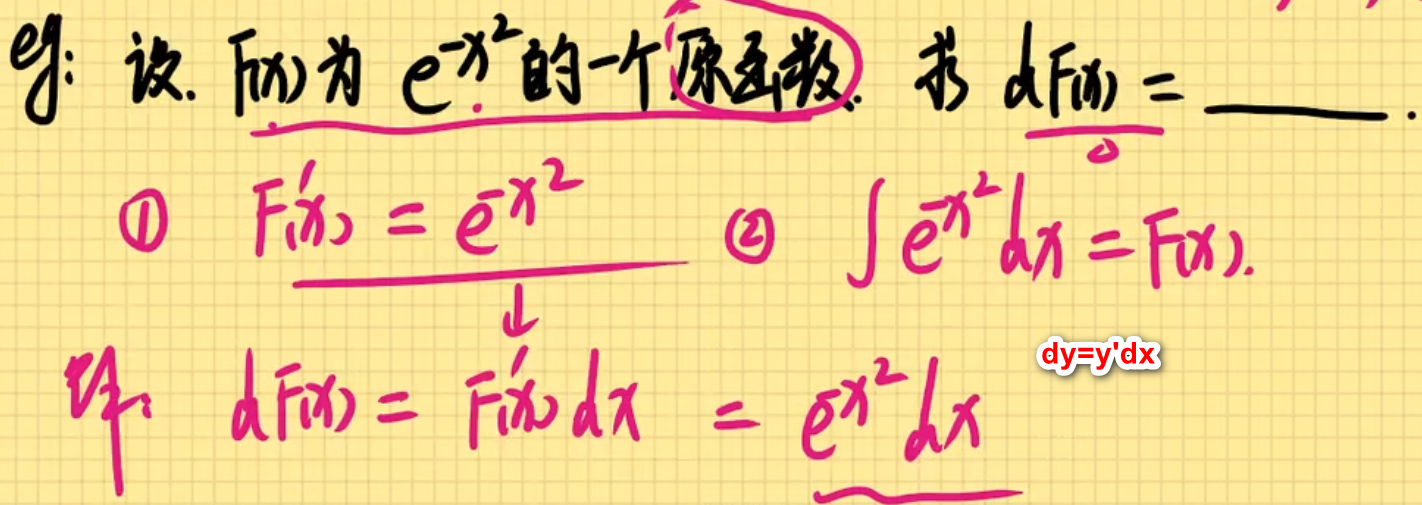 eg: 设. F(x)为 e^{-x^2} 的一个原函数. 求 dF(x) = ______.
① F'(x) = e^{-x^2} ② ∫e^{-x^2}dx = F(x).
dy=y'dx
解: dF(x) = F'(x)dx = e^{-x^2}dx